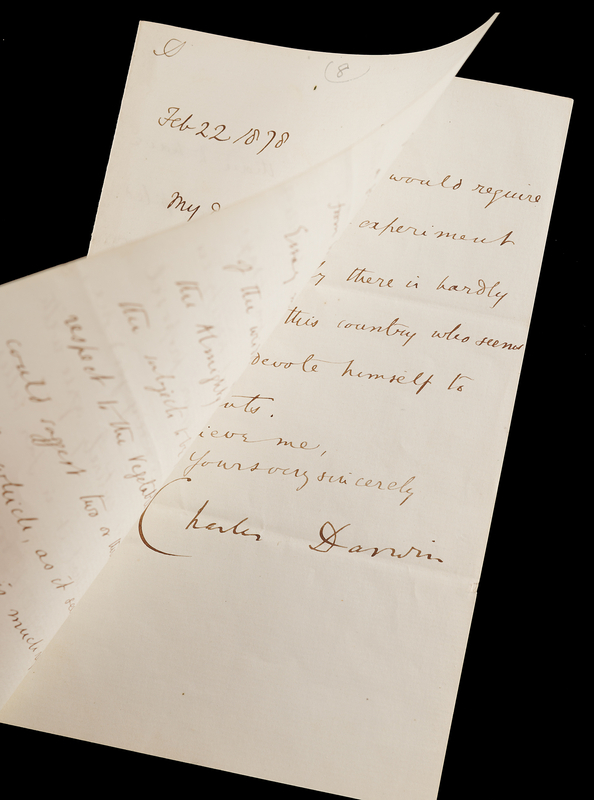 8
Feb 22 1878
My D
would require
experiment
there is hardly
this country who seems
Devote himself to
nts.
ieve me,
Yours very sincerely
Charles Darwin
Essay
of the
the Almighty
the subject
respect to the Vegetable
could suggest two or th
which, as it
is much